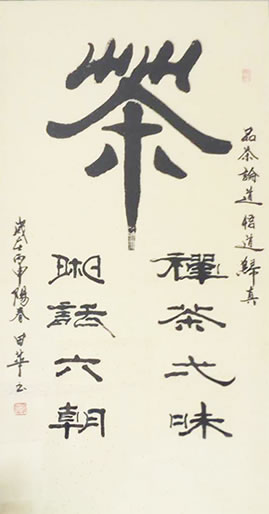 茶
品茶論道 悟道歸真
禪茶弌味
聊話六朝
歲在丙申陽春 田華書